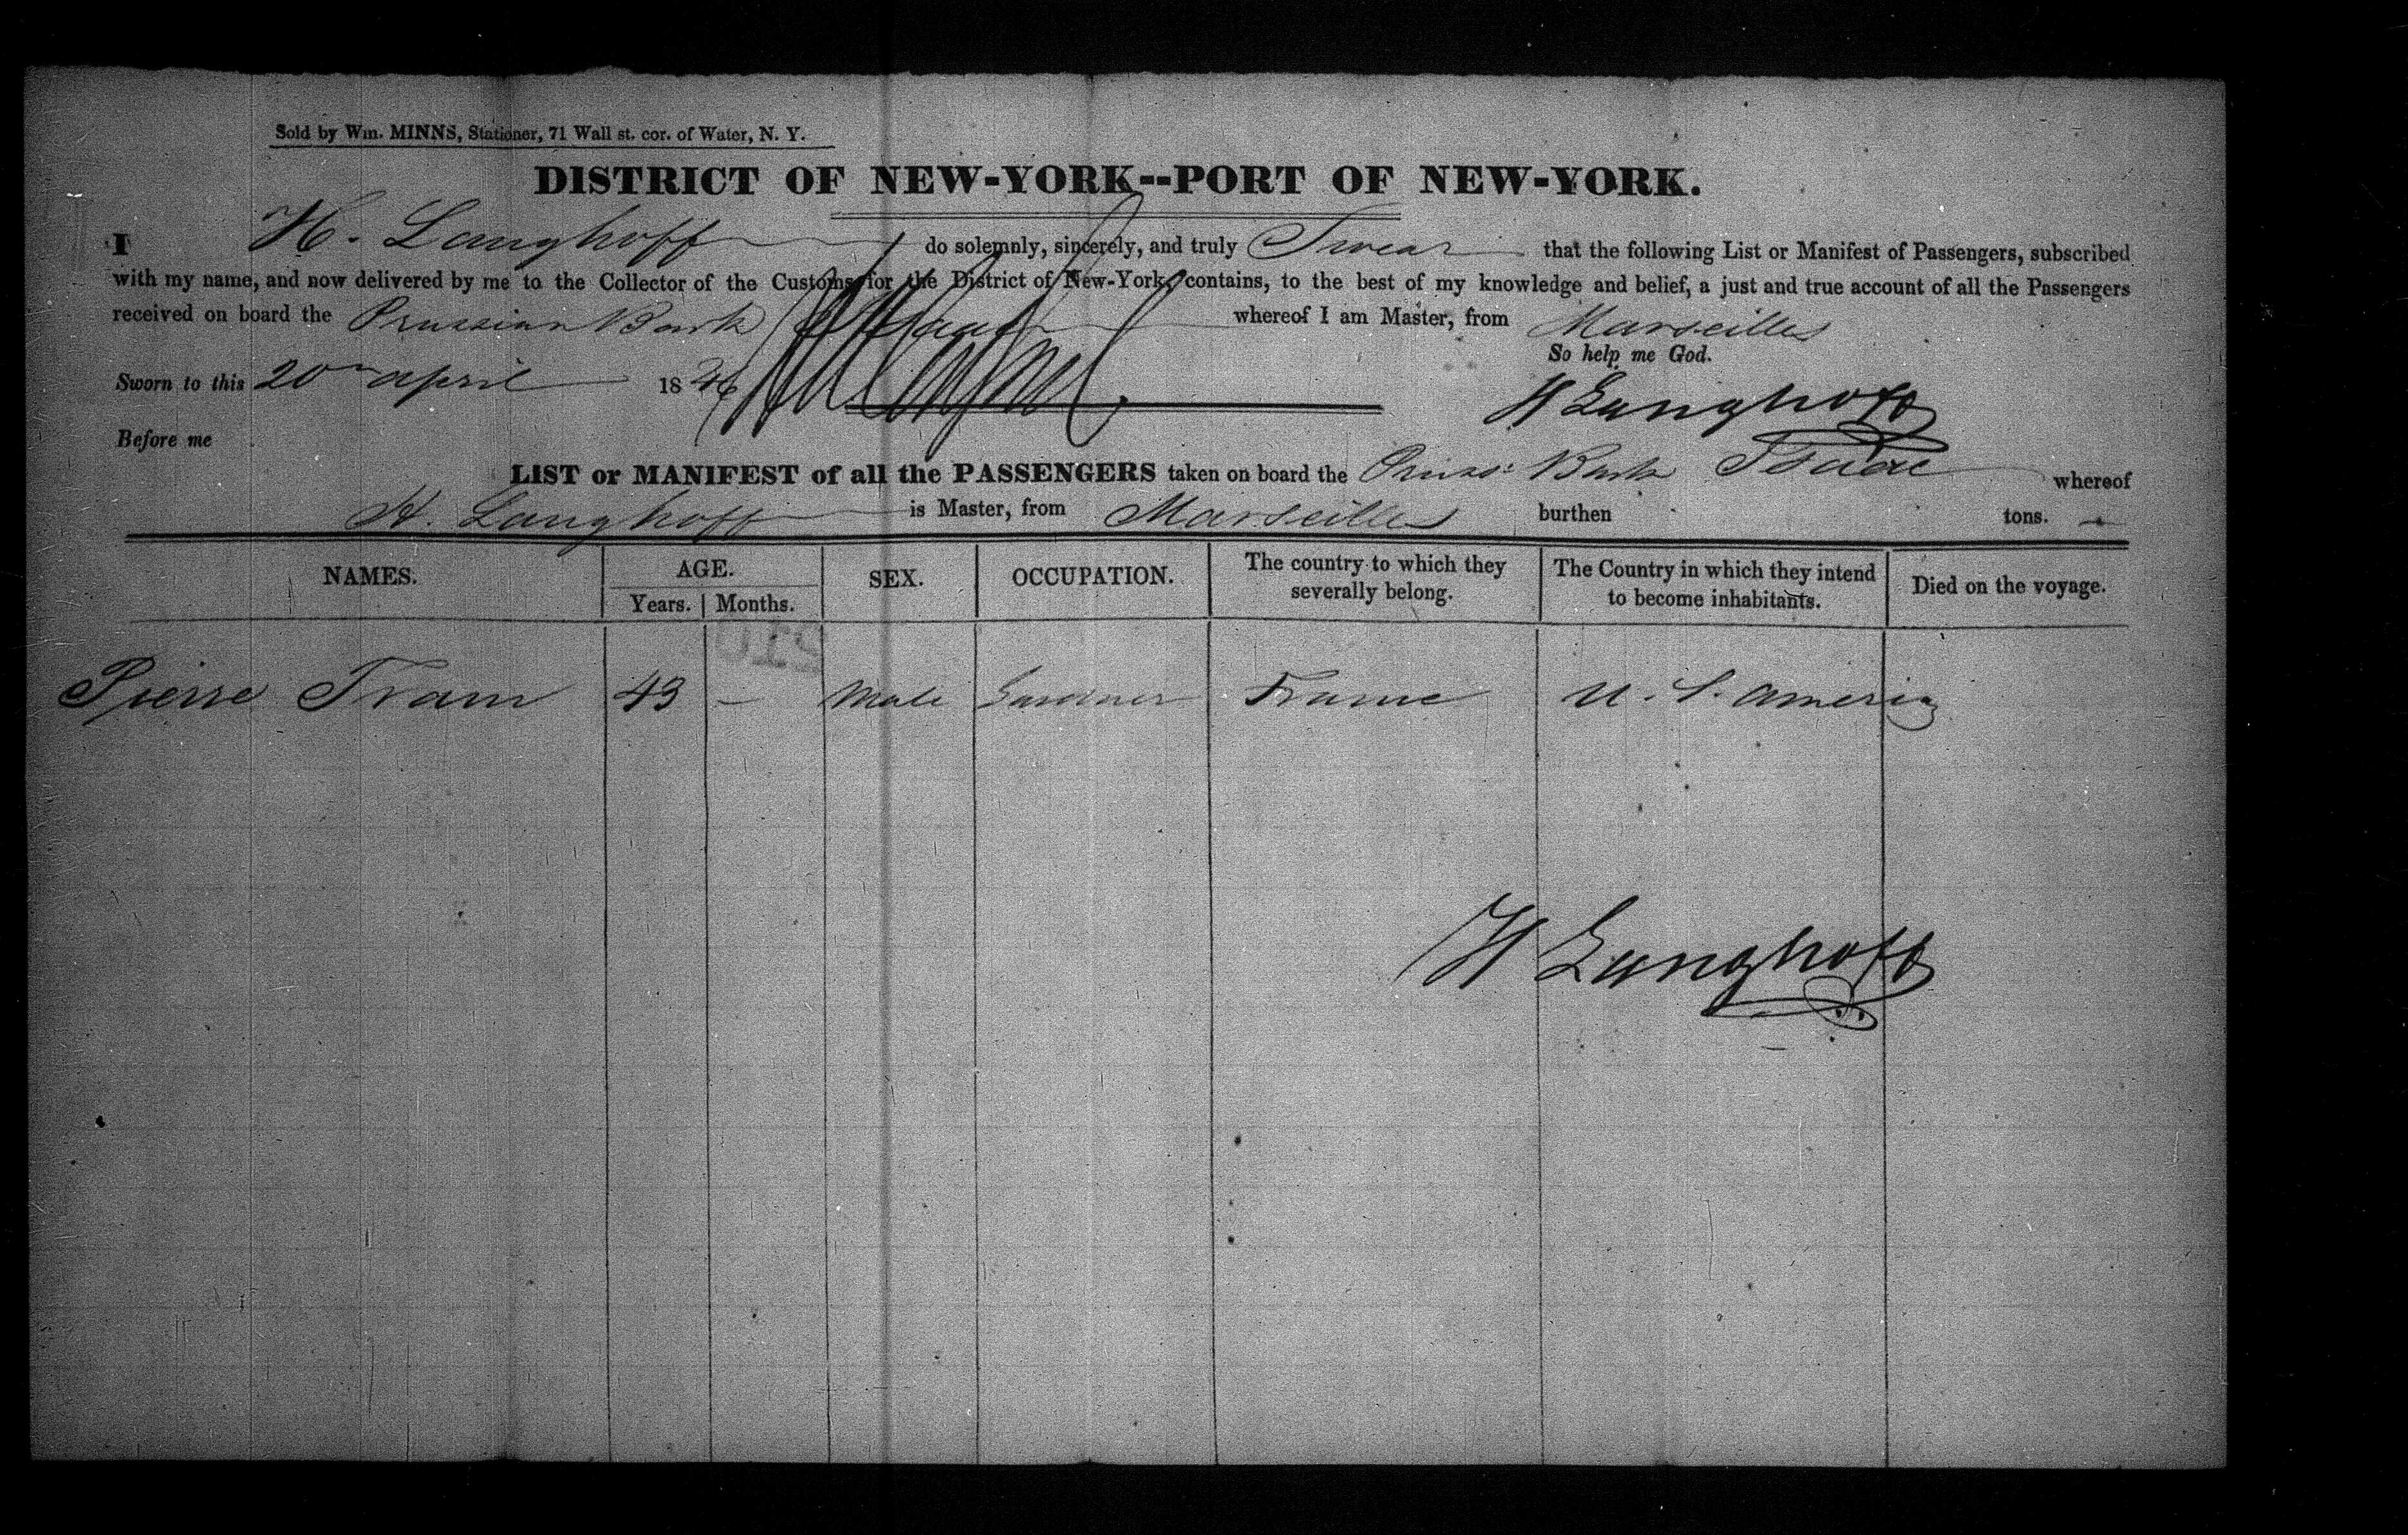 Sold by Wm. MINNS, Stationer, 71 Wall st. cor. of Water, N. Y.
DISTRICT OF NEW-YORK--PORT OF NEW-YORK.
I H. Langhoff do solemnly, sincerely, and truly Swear that the following List or Manifest of Passengers, subscribed
with my name, and now delivered by me to the Collector of the Customs for the District of New-York, contains, to the best of my knowledge and belief, a just and true account of all the Passengers
received on board the Prussian Bark Isaac whereof I am Master, from Marseilles
So help me God.
Sworn to this 20th april 1846
H Langhoff
Before me
LIST or MANIFEST of all the PASSENGERS taken on board the Pruss: Bark Isaac whereof
H. Langhoff is Master, from Marseilles burthen tons.
NAMES. AGE. Years. Months. SEX. OCCUPATION. The country to which they severally belong. The Country in which they intend to become inhabitants. Died on the voyage.
Pierre Tram 43 - Male Gardner France U. S. America
H Langhoff